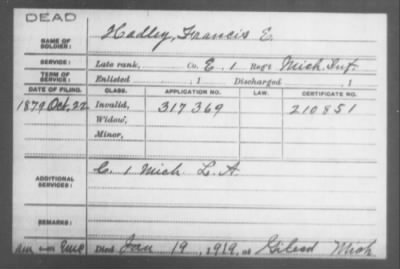 DEAD
NAME OF SOLDIER: Hadley, Francis E.
SERVICE: Late rank, Co. E. 1 Reg't Mich. Inf.
TERM OF SERVICE: Enlisted , 1 Discharged , 1
DATE OF FILING. CLASS. APPLICATION NO. LAW. CERTIFICATE NO.
1879 Oct. 22 Invalid, 317369 210851
Widow,
Minor,
ADDITIONAL SERVICES: C. 1 Mich. L. A.
REMARKS:
Died Jan 19, 1919, at Gilead Mich